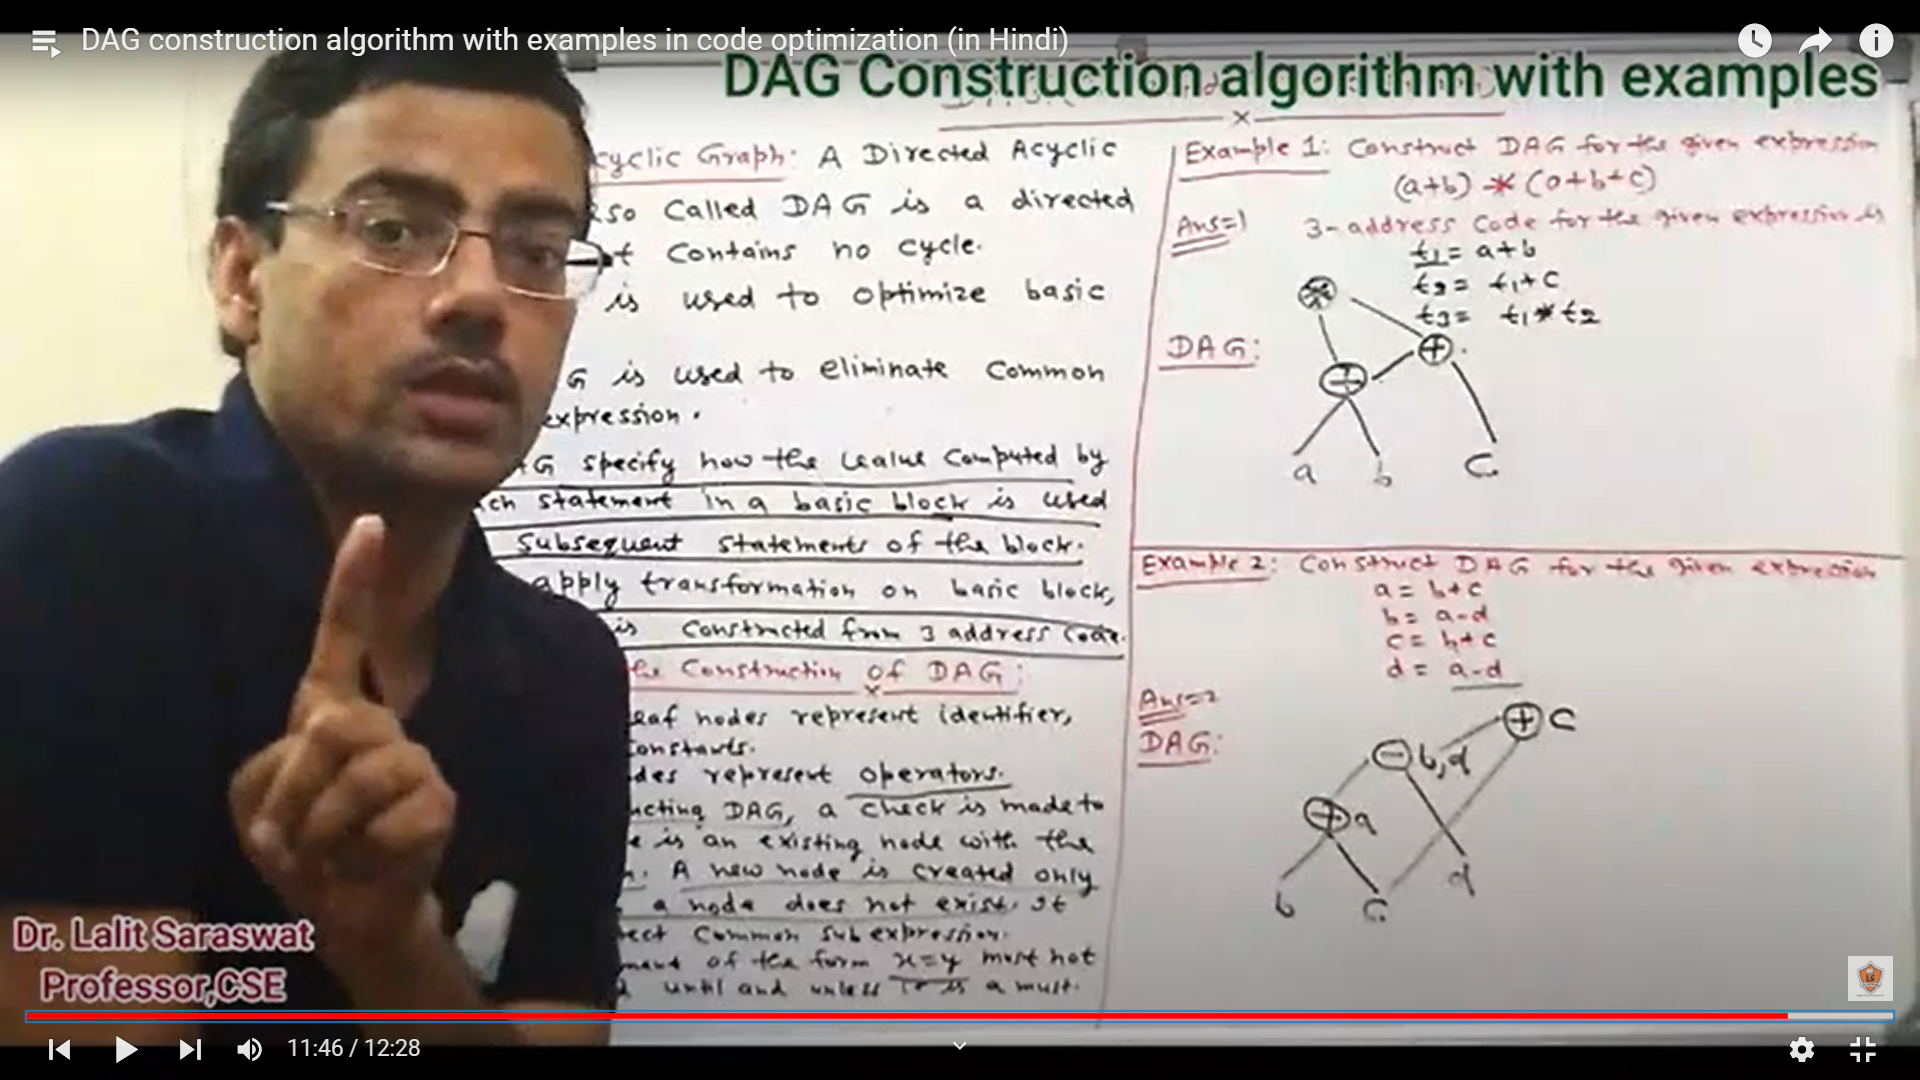 DAG construction algorithm with examples in code optimization (in Hindi)
DAG Construction algorithm with examples
cyclic Graph: A Directed Acyclic
so Called DAG is a directed
t Contains no cycle.
is used to optimize basic
G is used to eliminate Common
expression.
AG specify how the value Computed by
ch statement in a basic block is used
subsequent statements of the block.
apply transformation on basic block,
is Constructed from 3 address Code.
the Construction of DAG:
leaf nodes represent identifier,
Constants.
des represent operators.
ucting DAG, a check is made to
e is an existing node with the
n. A new node is created only
a node does not exist. It
ect Common sub expression.
ment of the form x=y must not
d until and unless it is a must.
Example 1: Construct DAG for the given expression
(a+b) * (a+b+c)
Ans=1 3-address Code for the given expression is
t1 = a+b
t2 = t1+C
t3 = t1*t2
DAG:
*
+
+
a b C
Example 2: Construct DAG for the given expression
a = b+c
b = a-d
c = b+c
d = a-d
Ans=2
DAG:
+ C
- b,d
+ a
d
b C
Dr. Lalit Saraswat
Professor,CSE
11:46 / 12:28